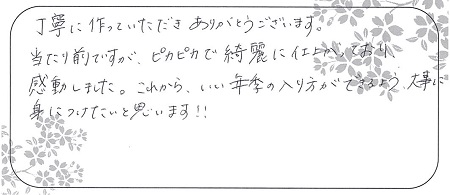 丁寧に作っていただきありがとうございます。
当たり前ですが、ピカピカで綺麗に仕上がっており、
感動しました。これから、いい年季の入り方ができるよう、大事に
身につけたいと思います!!